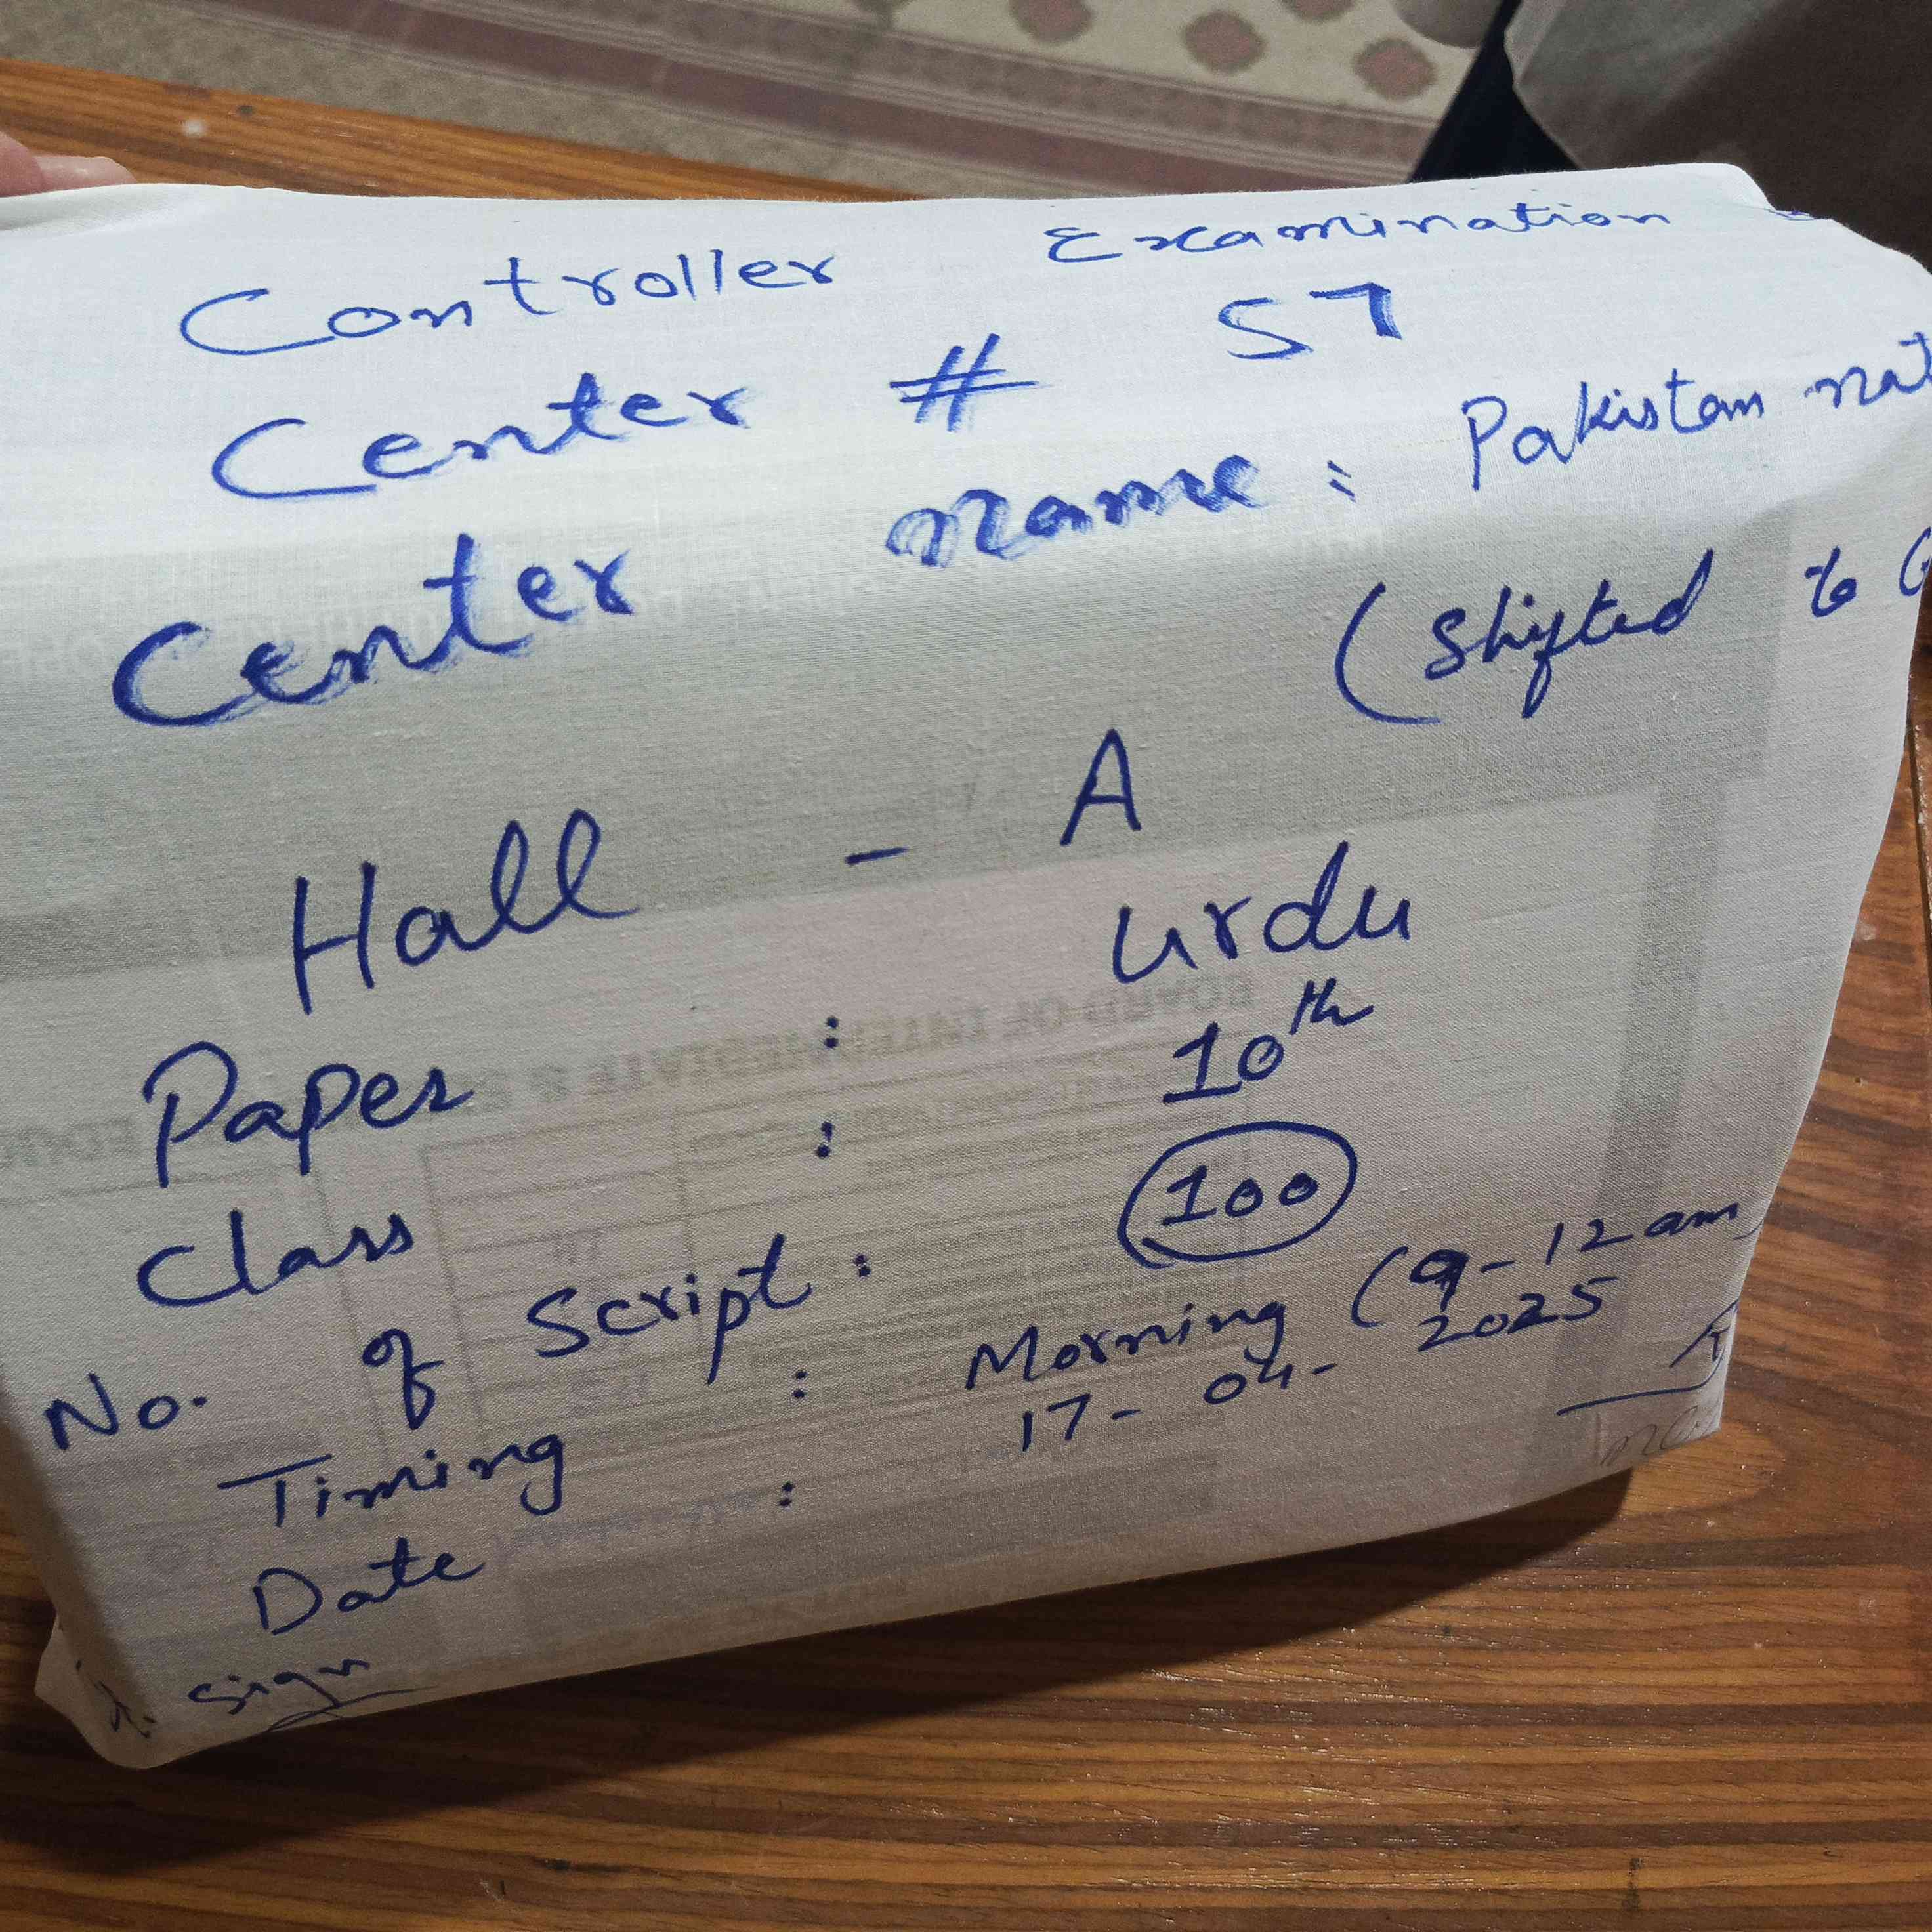 Controller Examination
Center # 57
Center name : Pakistan nat
(Shifted to
Hall - A
Paper : urdu
Class : 10th
No. of Script : 100
Timing : Morning (9-12 am)
Date : 17-04-2025
Sign